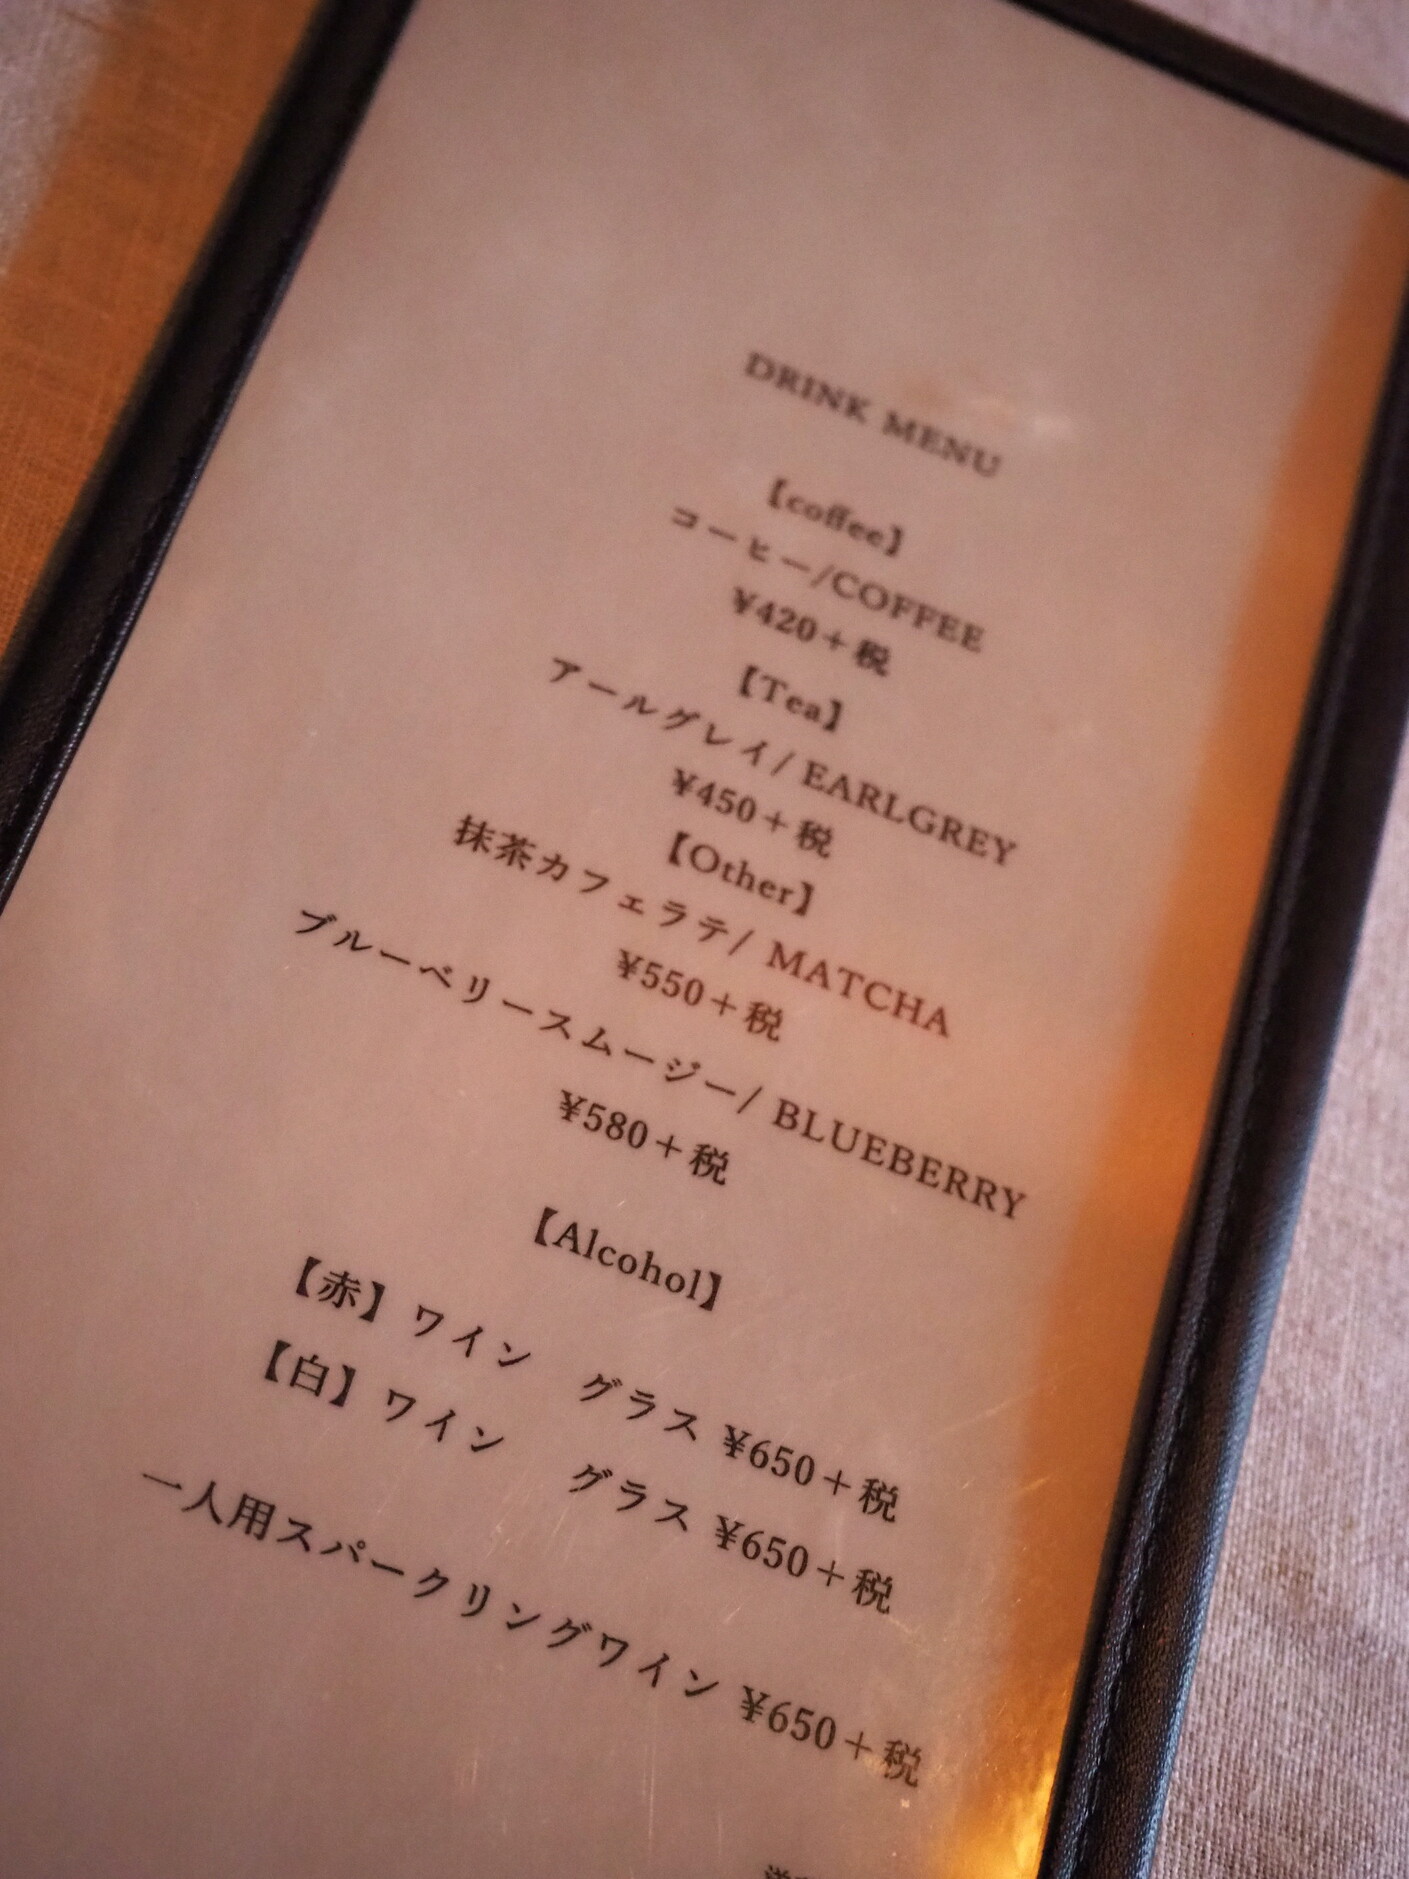 DRINK MENU
【coffee】
コーヒー/COFFEE
¥420＋税
【Tea】
アールグレイ/ EARLGREY
¥450＋税
【Other】
抹茶カフェラテ/ MATCHA
¥550＋税
ブルーベリースムージー/ BLUEBERRY
¥580＋税
【Alcohol】
【赤】ワイン　グラス ¥650＋税
【白】ワイン　グラス ¥650＋税
一人用スパークリングワイン ¥650＋税